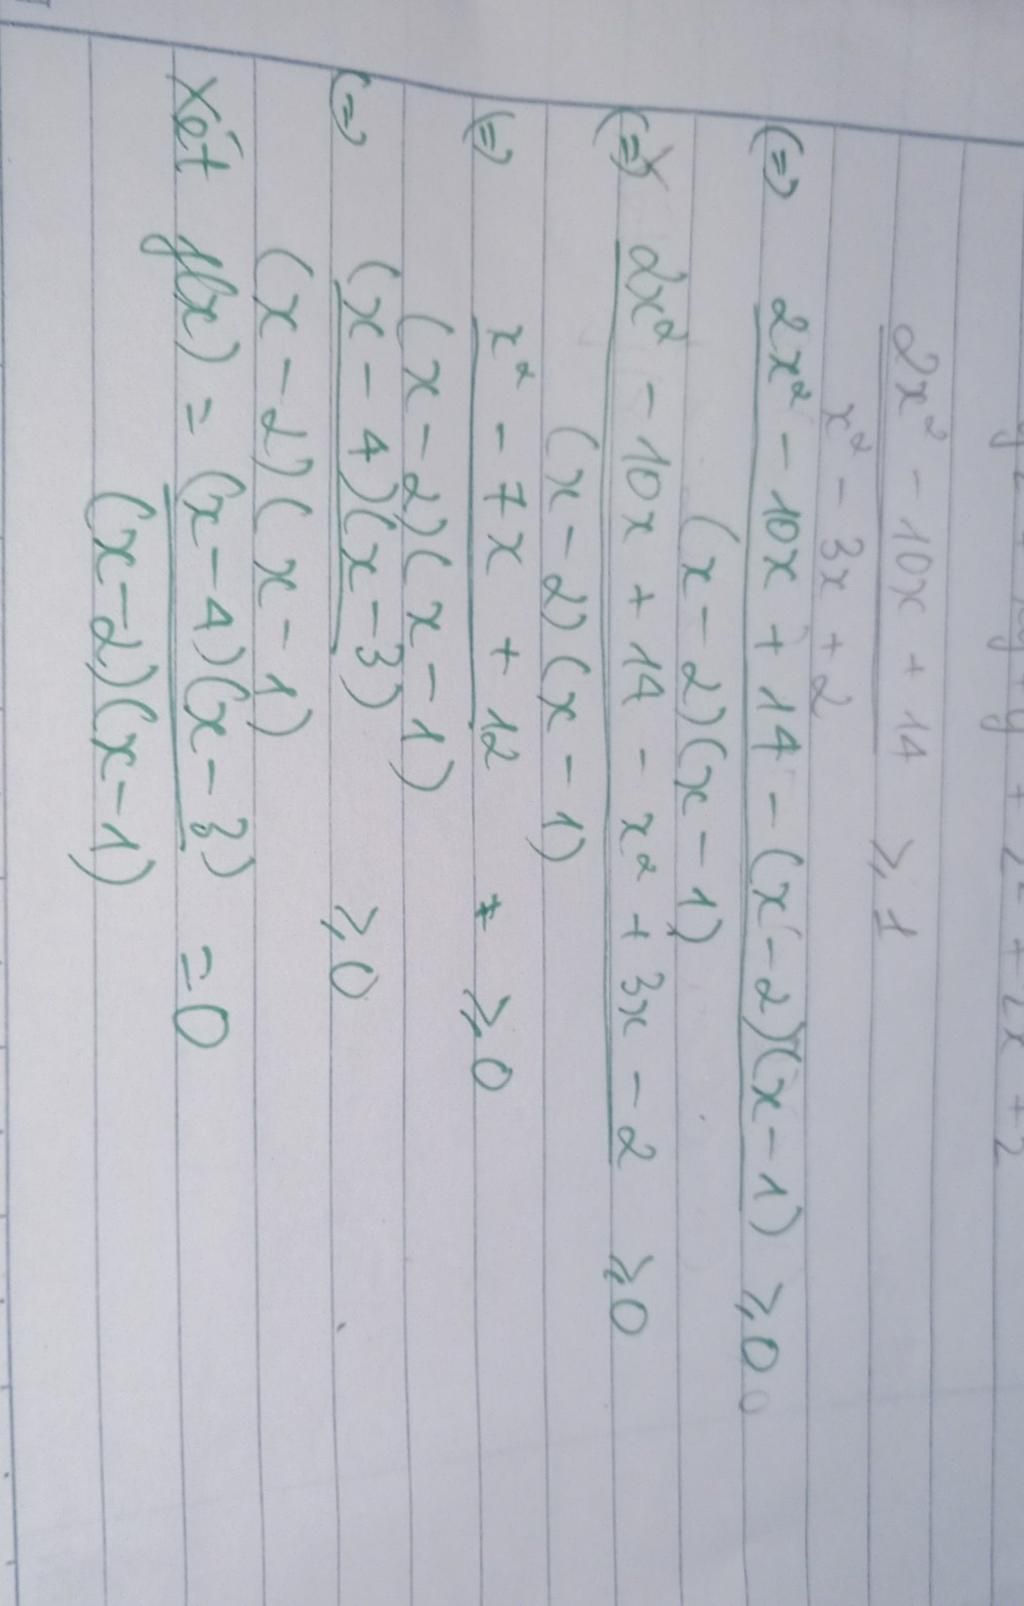 2x² - 10x + 14 ⩾ 1
x² - 3x + 2
(=) 2x² - 10x + 14 - (x - 2)(x - 1) ⩾ 0
(x - 2)(x - 1)
(=) 2x² - 10x + 14 - x² + 3x - 2 ⩾ 0
(x - 2)(x - 1)
(=) x² - 7x + 12 ⩾ 0
(x - 2)(x - 1)
(=) (x - 4)(x - 3) ⩾ 0
(x - 2)(x - 1)
Xét f(x) = (x - 4)(x - 3) = 0
(x - 2)(x - 1)